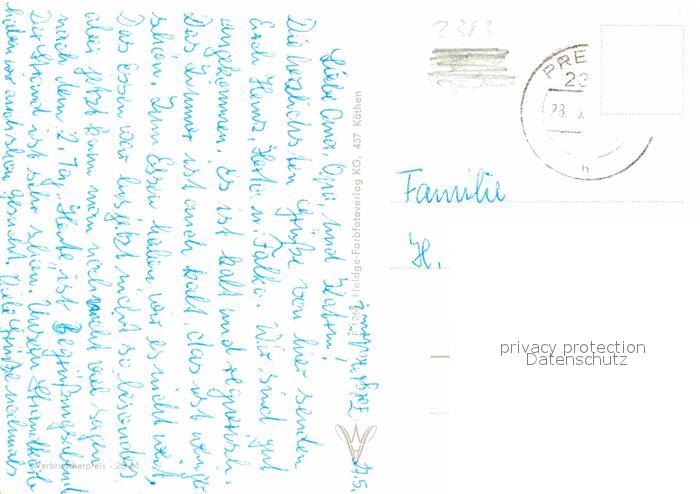 27.5.
Liebe Oma, Opa, und Katrin!
Die herzlichsten Grüße von hier senden
Euch Heinz, Herta u. Falko. Wir sind gut
angekommen, es ist kalt und regnerisch.
Das Zimmer ist auch kalt, das ist weniger
schön. Zum Essen haben wir es nicht weit
Das Essen war bis jetzt nicht so besonders
aber jetzt kann man noch nicht viel sagen
nach dem 2. Tag. Heute ist Begrüßungsabend
Der Strand ist sehr schön. Unsern Strandkorb
haben wir auch schon gesucht. Viele Grüße nochmals
F 1268 Heldge-Farbfotoverlag KG, 437 Köthen
Verbraucherpreis -.20 M
2383
PRE
23
28. 5.
h
Familie
H.
privacy protection
Datenschutz